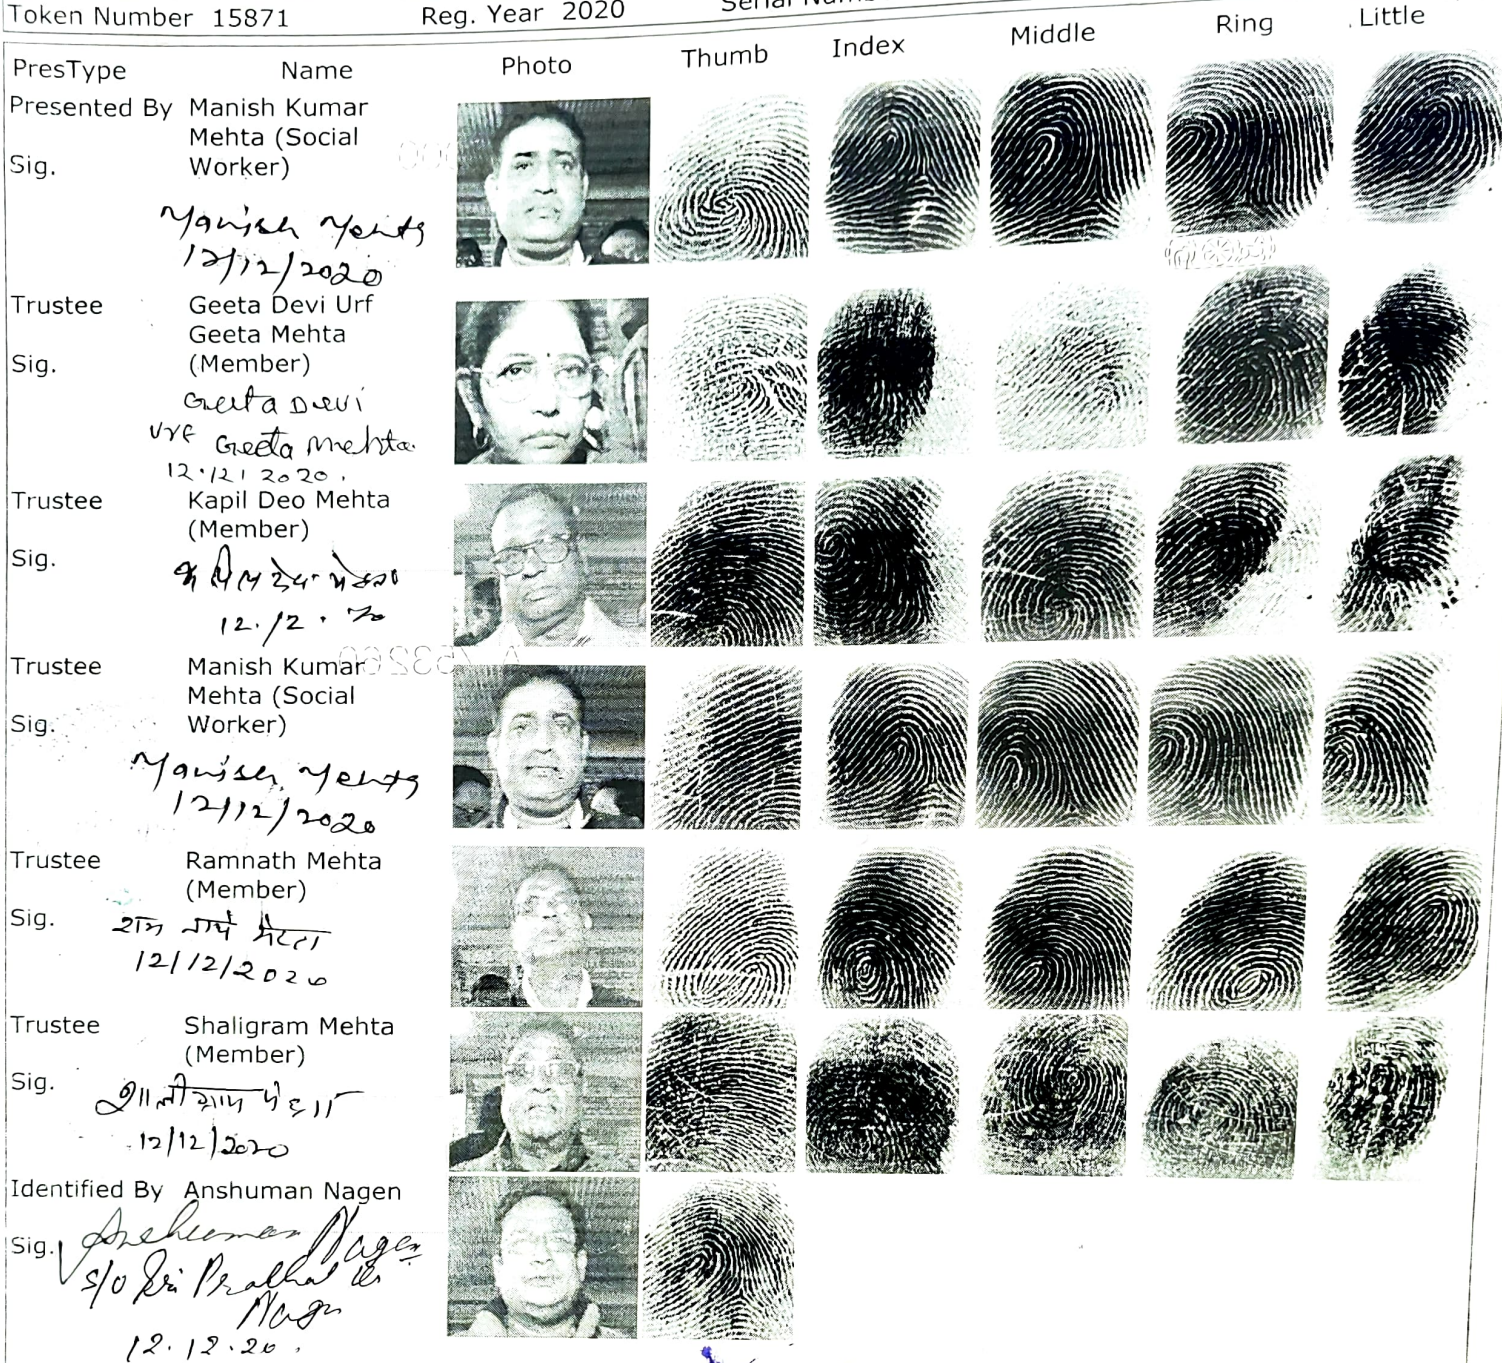 Token Number 15871 Reg. Year 2020
PresType Name Photo Thumb Index Middle Ring Little
Presented By Manish Kumar
Mehta (Social
Sig. Worker)
Manish Mehta
12/12/2020
Trustee Geeta Devi Urf
Geeta Mehta
Sig. (Member)
Geeta Devi
urf Geeta Mehta.
12.12.2020.
Trustee Kapil Deo Mehta
(Member)
Sig.
कपिल देव मेहता
12.12.20
Trustee Manish Kumar
Mehta (Social
Sig. Worker)
Manish Mehta
12/12/2020
Trustee Ramnath Mehta
(Member)
Sig. राम नाथ मेहता
12/12/2020
Trustee Shaligram Mehta
(Member)
Sig.
शालीग्राम मेहता
12/12/2020
Identified By Anshuman Nagen
Sig. Anshuman Nagen
S/o Sri
12.12.20.